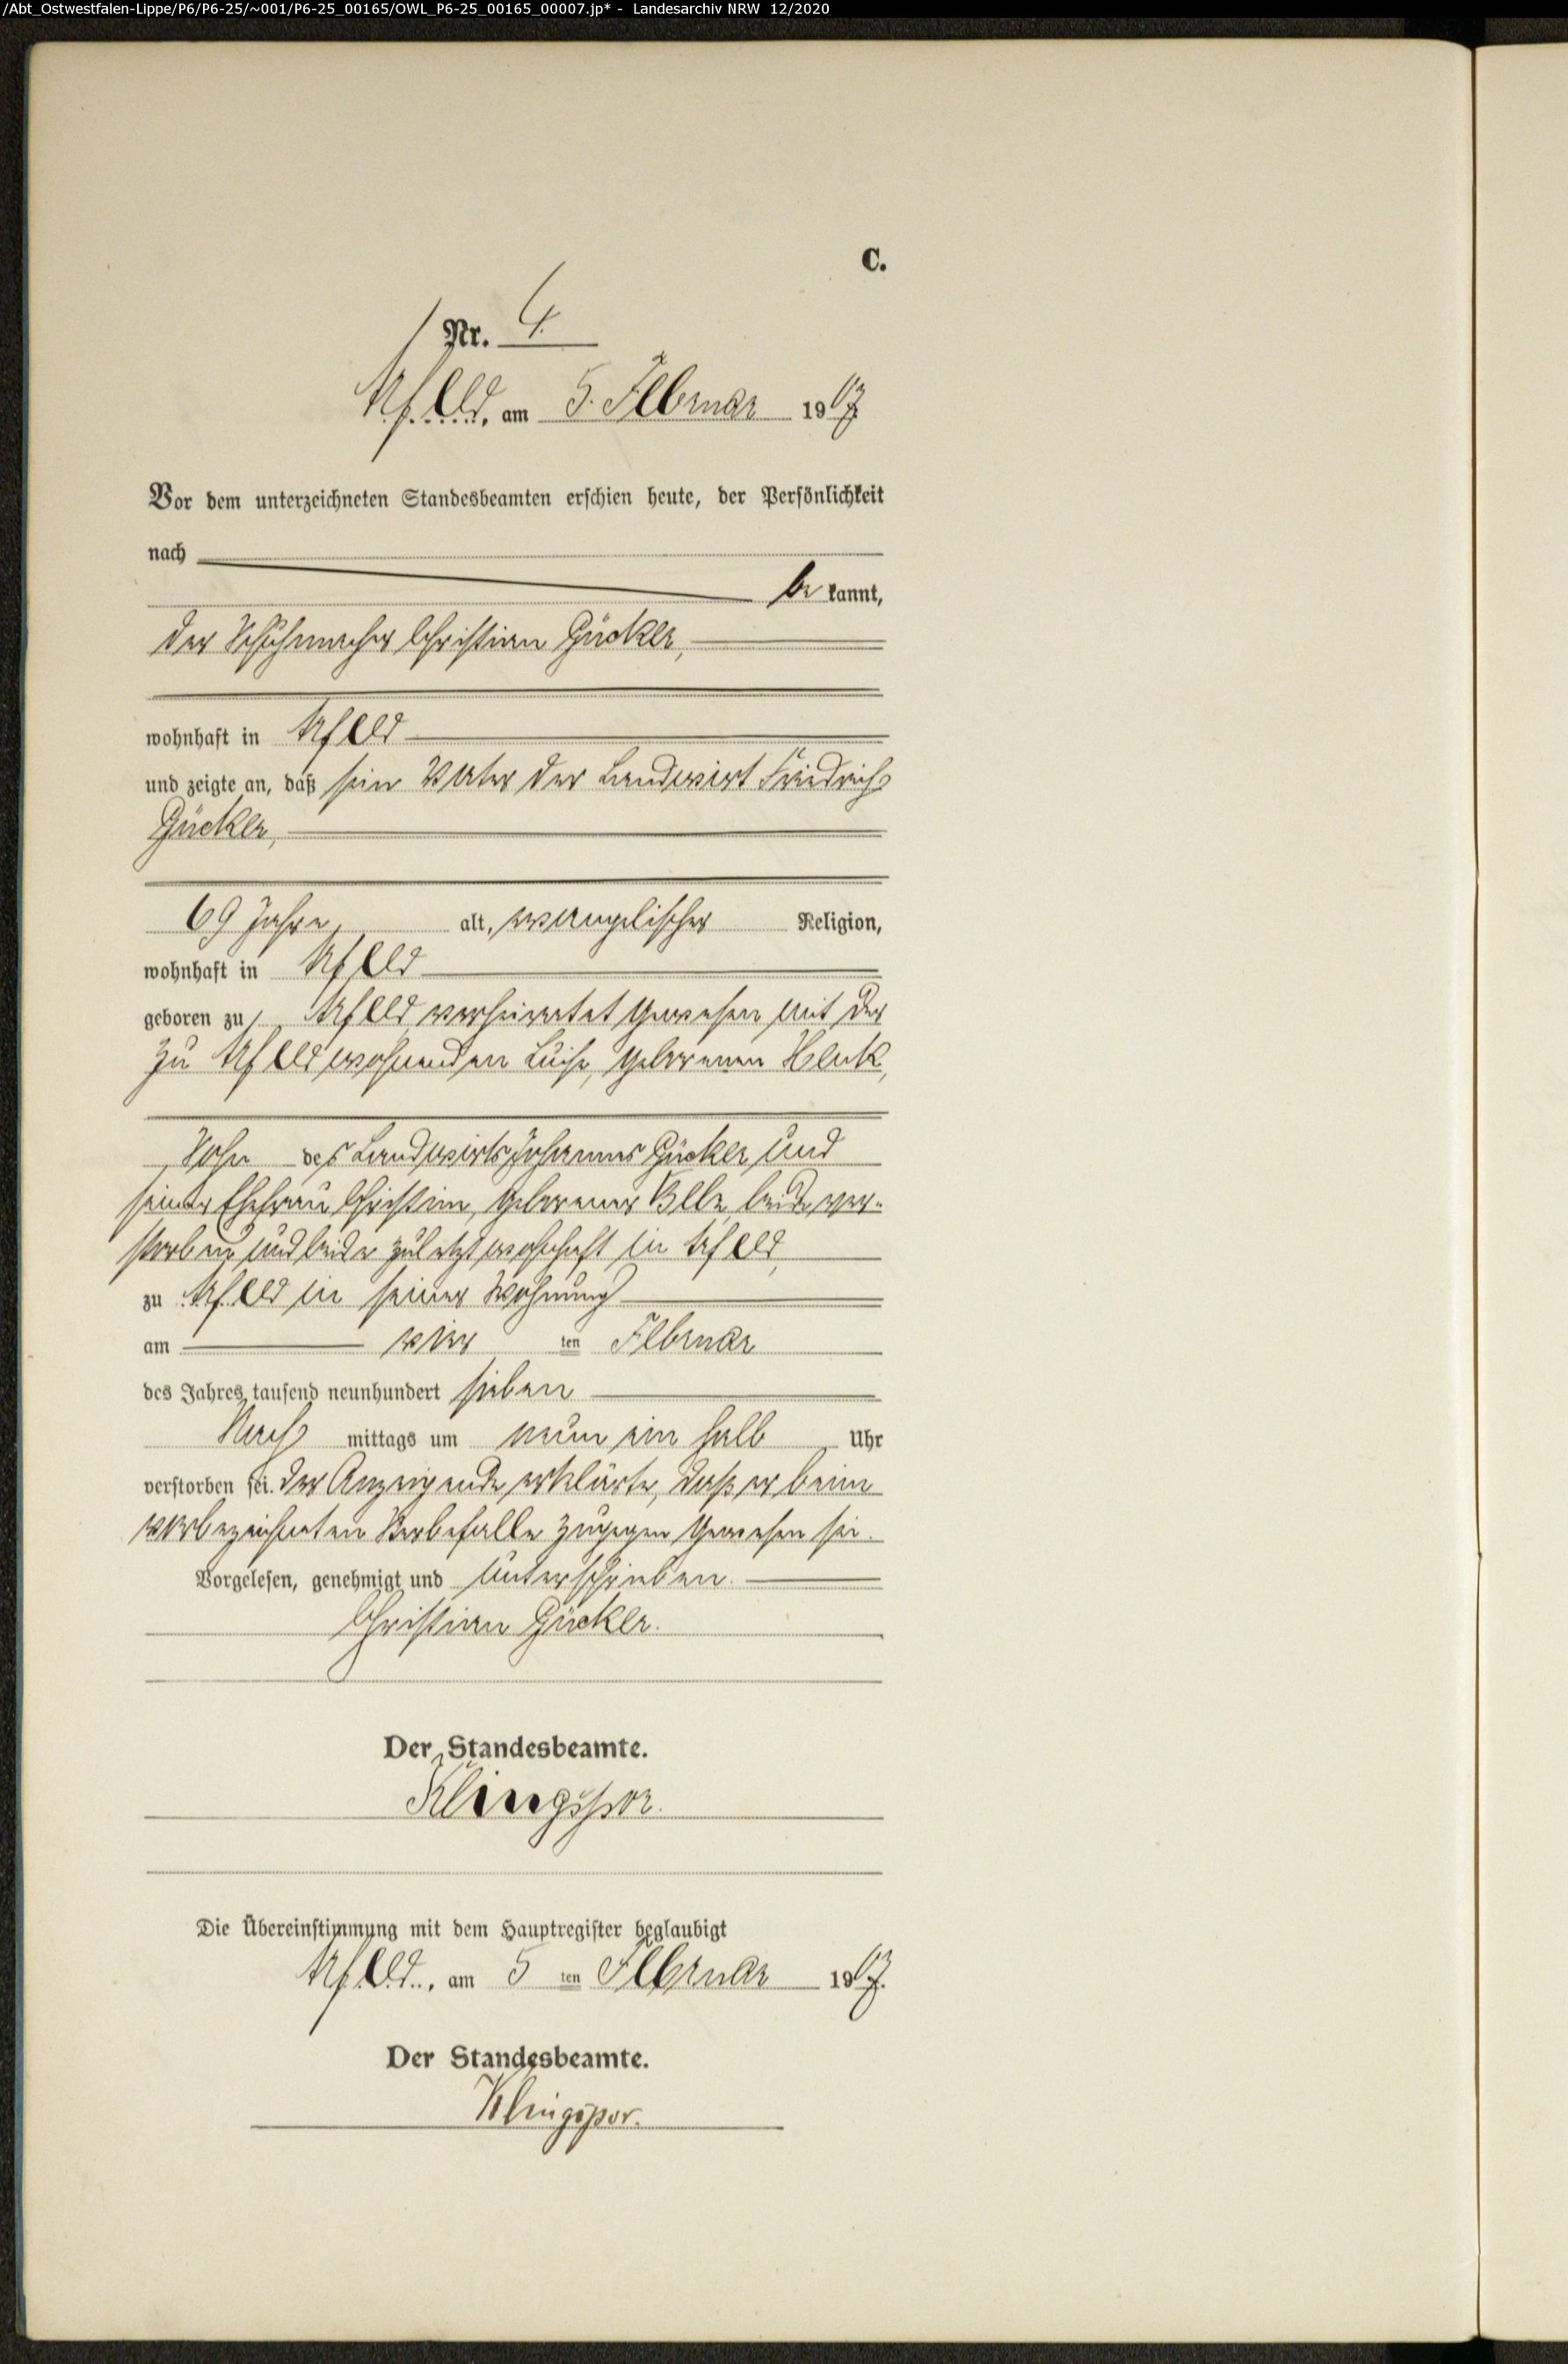 /Abt_Ostwestfalen-Lippe/P6/P6-25/~001/P6-25_00165/OWL_P6-25_00165_00007.jp* - Landesarchiv NRW 12/2020
C.
Nr. 4.
am 5. Februar 1907
Vor dem unterzeichneten Standesbeamten erschien heute, der Persönlichkeit
nach
be kannt,
der Schuhmacher Christian Gücker,
wohnhaft in
und zeigte an, daß sein Vater der Landwirt Friedrich
Gücker,
69 Jahre, alt, evangelischer Religion,
wohnhaft in
geboren zu verheiratet gewesen mit der
zu wohnenden Luise, geborenen
Sohn des Landwirts Johannes Gücker und
seiner Ehefrau Christine, geborener beide ver-
storben und beide zuletzt wohnhaft in
zu in seiner Wohnung
am vier ten Februar
des Jahres tausend neunhundert sieben
Nach mittags um neun ein halb Uhr
verstorben sei. Der Anzeigende erklärte, daß er beim
vorbezeichneten Sterbefalle zugegen gewesen sei.
Vorgelesen, genehmigt und unterschrieben.
Christian Gücker.
Der Standesbeamte.
Klingspor.
Die Übereinstimmung mit dem Hauptregister beglaubigt
am 5 ten Februar 1907.
Der Standesbeamte.
Klingspor.